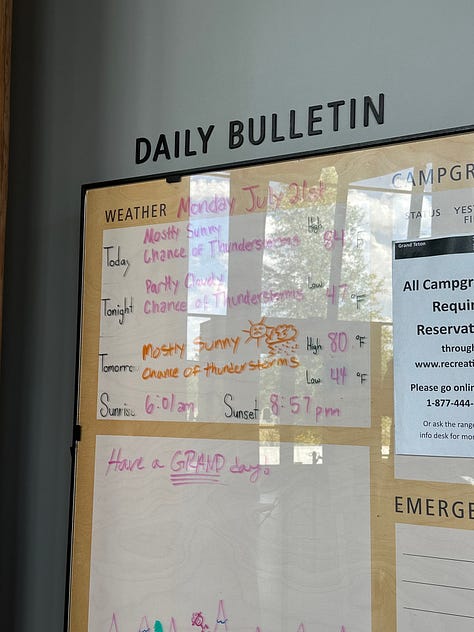 DAILY BULLETIN
WEATHER Monday July 21st
Today
Mostly Sunny
Chance of Thunderstorms
High 84 °F
Tonight
Partly Cloudy
Chance of Thunderstorms
Low 47 °F
Tomorrow
Mostly Sunny
Chance of thunderstorms
High 80 °F
Low 44 °F
Sunrise 6:01am Sunset 8:57pm
Have a GRAND day!
CAMPGR
STATUS YES
FI
Grand Teton
All Campgr
Requir
Reservat
throug
www.recreati
Please go onlin
1-877-444-
Or ask the rang
info desk for mo
EMERGE